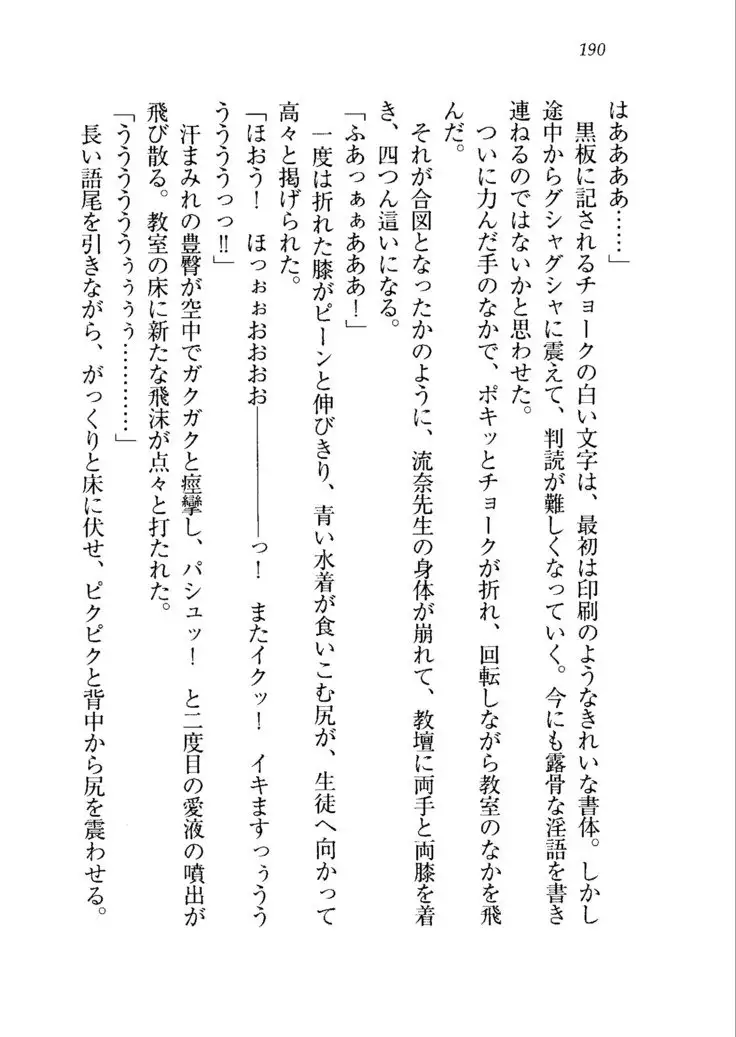 190
はああああ……」
　黒板に記されるチョークの白い文字は、最初は印刷のようなきれいな書体。しかし
途中からグシャグシャに震えて、判読が難しくなっていく。今にも露骨な淫語を書き
連ねるのではないかと思わせた。
　ついに力んだ手のなかで、ポキッとチョークが折れ、回転しながら教室のなかを飛
んだ。
　それが合図となったかのように、流奈先生の身体が崩れて、教壇に両手と両膝を着
き、四つん這いになる。
「ふあっぁぁあああ！」
　一度は折れた膝がピーンと伸びきり、青い水着が食いこむ尻が、生徒へ向かって
高々と掲げられた。
「ほおう！　ほっぉぉおおおお――――――っ！　またイクッ！　イキますっぅうう
ううううっっ!!」
　汗まみれの豊臀が空中でガクガクと痙攣し、パシュッ！　と二度目の愛液の噴出が
飛び散る。教室の床に新たな飛沫が点々と打たれた。
「うううううぅぅぅぅ…………」
　長い語尾を引きながら、がっくりと床に伏せ、ピクピクと背中から尻を震わせる。